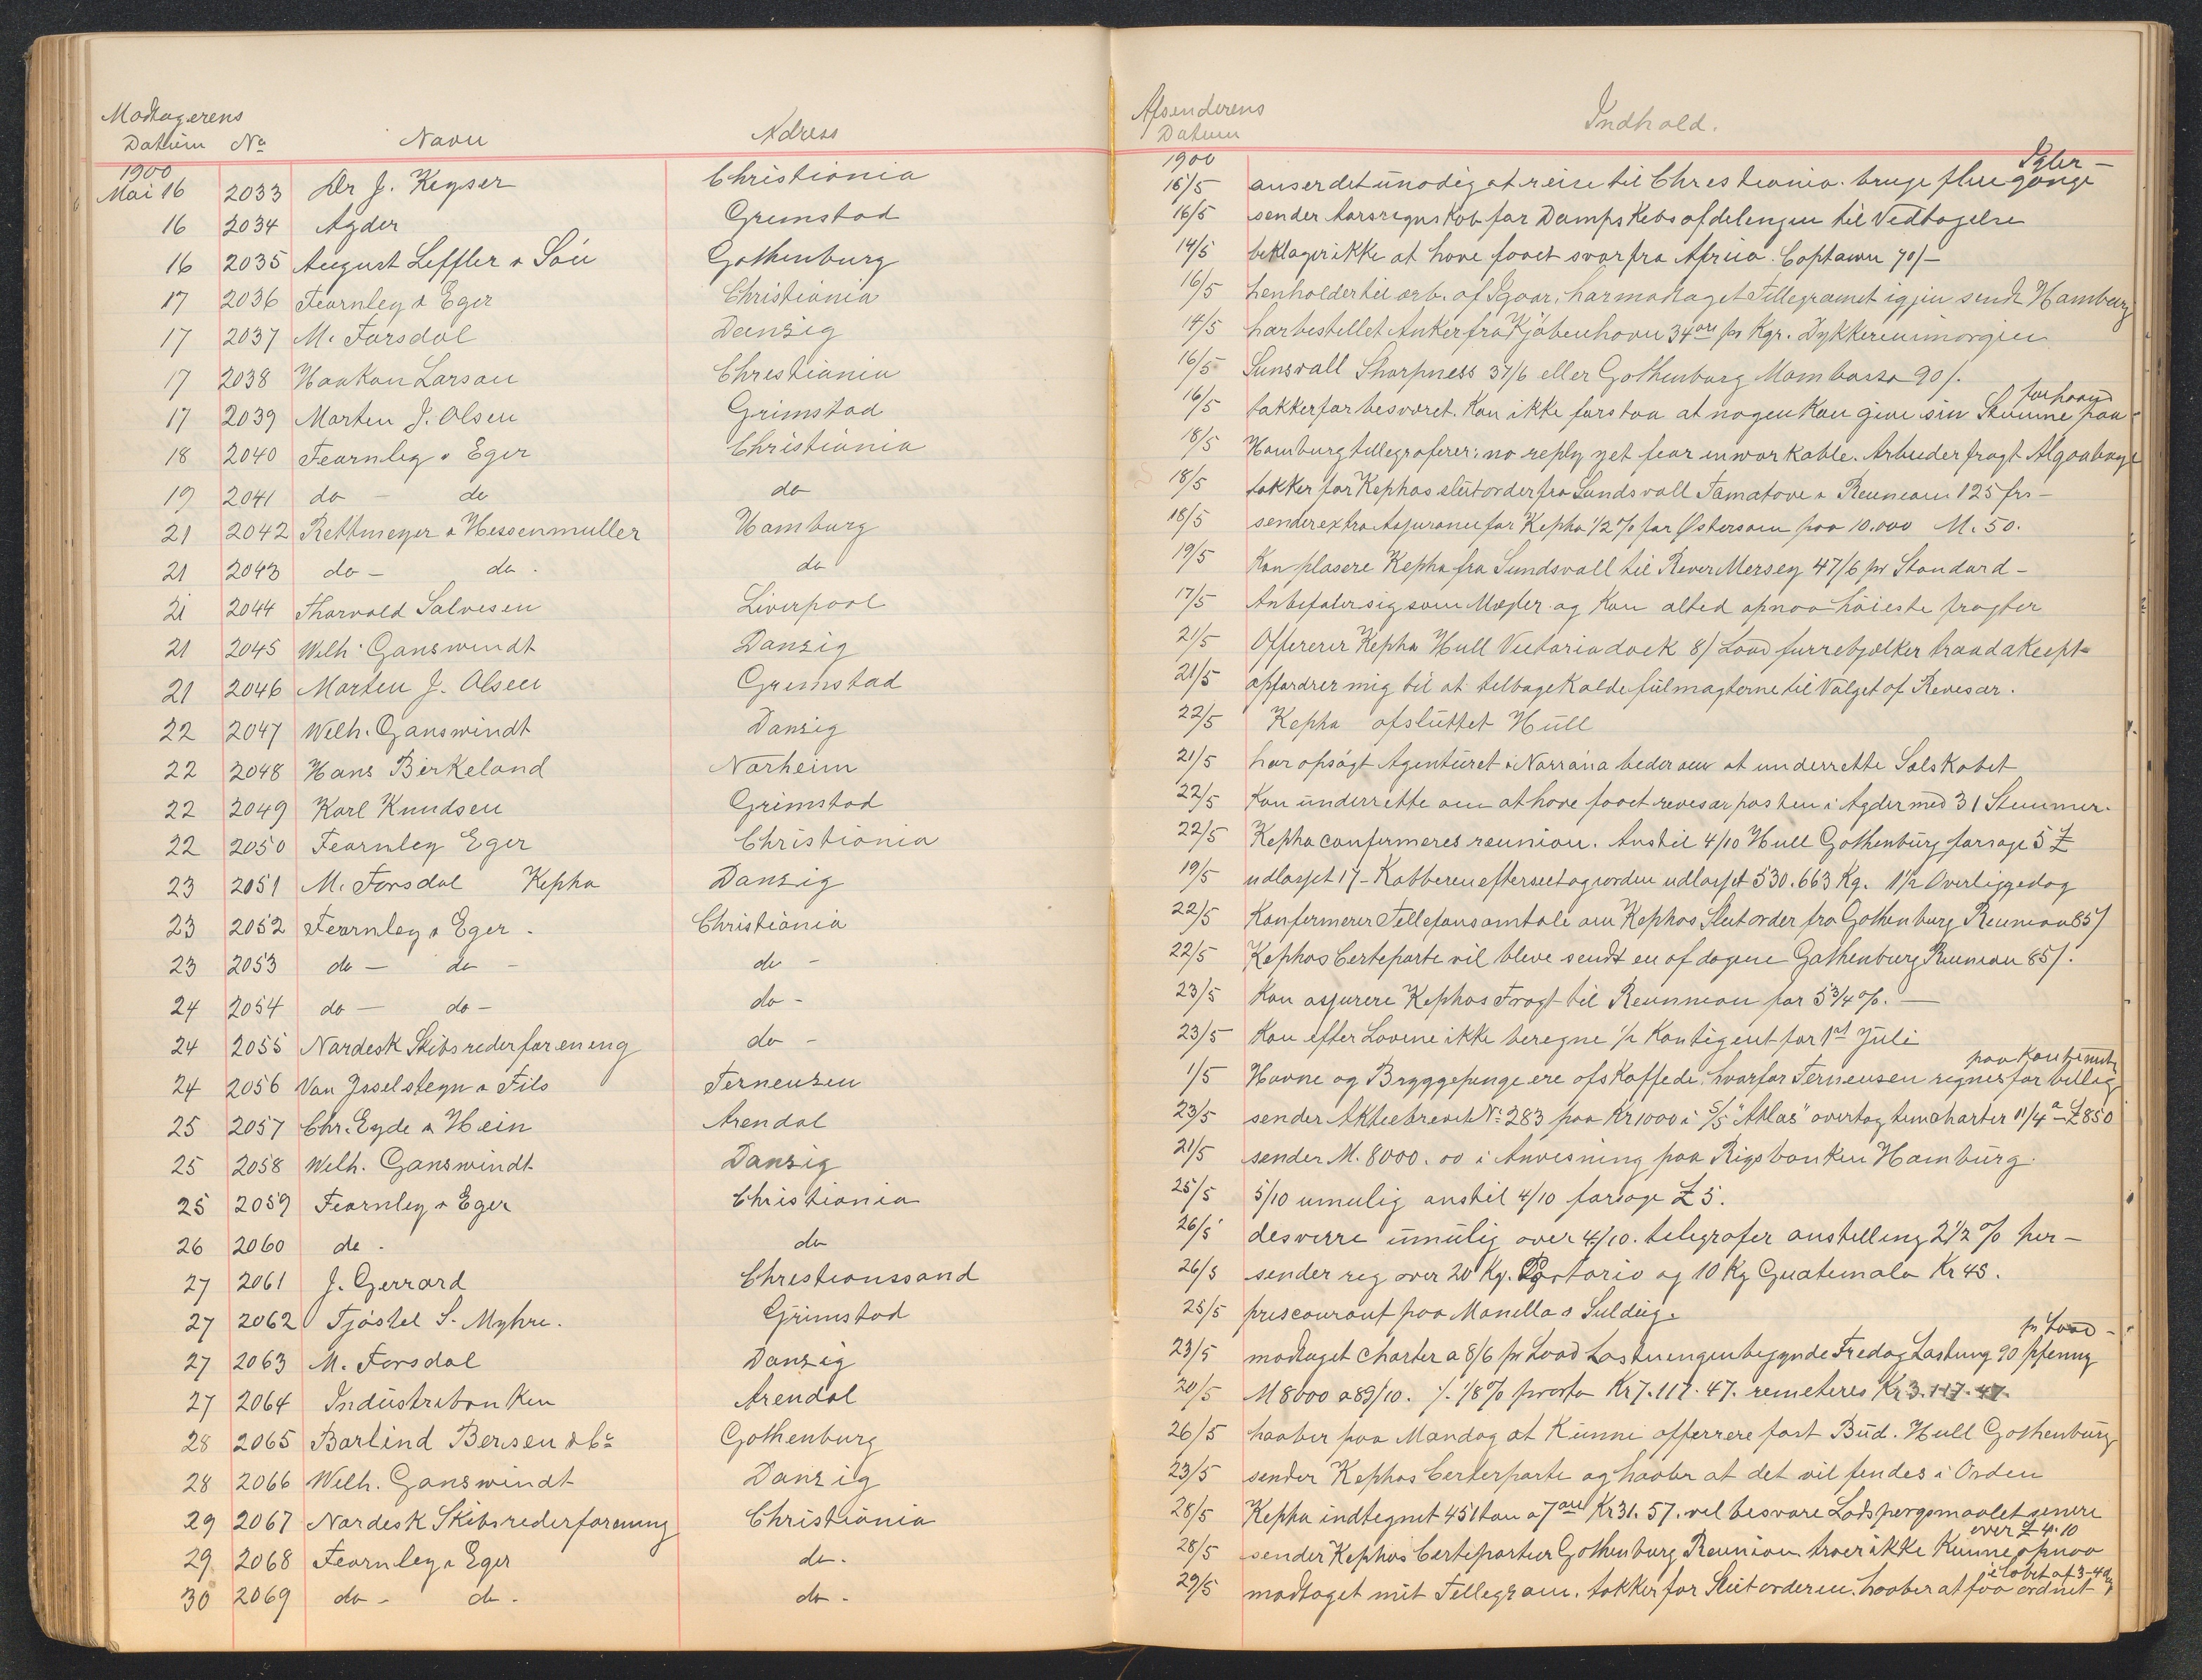 Modtagerens
Datum No Navn Adress
1900
Mai 16 2033 Dr J. Keyser Christiania
16 2034 Agder Grimstad
16 2035 August Leffler & Sön Gothenburg
17 2036 Fearnley & Eger Christiania
17 2037 M. Forsdal Danzig
17 2038 Haakon Larsen Christiania
17 2039 Morten J. Olsen Grimstad
18 2040 Fearnley & Eger Christiania
19 2041 do - do do
21 2042 Rettmeyer & Hessenmuller Hamburg
21 2043 do - do. do
21 2044 Thorvald Salvesen Liverpool
21 2045 Welh. Ganswindt Danzig
21 2046 Morten J. Olsen Grimstad
22 2047 Welh. Ganswindt Danzig
22 2048 Hans Birkeland Norheim
22 2049 Karl Knudsen Grimstad
22 2050 Fearnley Eger Christiania
23 2051 M. Forsdal Kepha Danzig
23 2052 Fearnley & Eger. Christiania
23 2053 do - do - do -
24 2054 do - do - do -
24 2055 Nordesk Skibsrederforeneng do -
24 2056 Van Ysselsteyn & Fils Terneuzen
25 2057 Chr. Eyde & Hein Arendal
25 2058 Welh. Ganswindt Danzig
25 2059 Fearnley & Eger Christiania
26 2060 do. do
27 2061 J. Gerrard Chrestianssand
27 2062 Tjöstel S. Myhre. Grimstad
27 2063 M. Forsdal Danzig
27 2064 Industribanken Arendal
28 2065 Barlind Bersen & Co Gothenburg
28 2066 Welh. Ganswindt Danzig
29 2067 Nordesk Skibsrederforening Christiania
29 2068 Fearnley & Eger do.
30 2069 do - do. do -
Afsenderens
Datum Indhold.
1900
15/5 anser det unodig at reise til Chrestiania. bruge flere gange
16/5 sender Aarsregnskab for Dampskibsafdelengen til Vedtagelse
14/5 beklager ikke at have faaet svar fra Africa. Captown 70/-
16/5 henholder til arb. af Igaar, har modtaget Tellegramet igjen sendt Hamburg
14/5 har bestellet Anker fra Kjöbenhavn 34 øre pr Kgr. Dykkeren imorgen
16/5 Sunsvall Sharpness 37/6 eller Gothenburg Mombassa 90/.
forhaand
16/5 takker for besværet. Kan ikke forstaa at nogen Kan give sin Stemme paa
18/5 Hamburg tellegraferer: no reply yet fear inworkable. Arbeider fragt Algoabay
18/5 takker for Kephas slutorder fra Sundsvall Tamatove & Reuneoen 125 frs -
18/5 sender extra Assurance for Kepha 1/2 % for Østersøen paa 10.000 M. 50.
19/5 Kan plasere Kepha fra Sundsvall til River Mersey 47/6 pr Standard -
17/5 Anbefaler sig som Mægler og Kan alted opnaa höieste fragter
21/5 Offererer Kepha Hull Victoriadock 8/ Load furrebjelker traad akcept
21/5 opfordrer mig til at telbagekalde fulmagterne til Valget af Revesor.
22/5 Kepha afsluttet Hull
21/5 har opsagt Agenturet i Norrøna beder om at underrette Selskabet
22/5 Kan underrette om at have faaet revesorposten i Agder med 31 Stemmer.
22/5 Kepha confermeres reunion. Anstil 4/10 Hull Gothenburg forsoge 5 £
19/5 udlosset 17 - Kobberen efterseet og vorden udlosset 530.663 Kg. 1 1/2 Overliggedag
22/5 Konfermerer Tellefonsamtale om Kephas Slutorder fra Gothenburg Reunion 85/
22/5 Kephas Certeparte vil bleve sendt en af dagene Gothenburg Reunion 85/.
23/5 Kan assurere Kephas Fragt til Reunneon for 5 3/4 %. -
23/5 Kan efter Lovene ikke beregne 1/2 Kontigent for 1st Juli
1/5 Havne og Bryggepenge ere afskaffede, hvorfor Terneusen regnes for billig
23/5 sender Aktiebrevet No 283 paa Kr 1000 i S/S "Atlas" overtog timecharter 11/4 a £850
21/5 sender M. 8000.00 i Anvisning paa Rigsbanken Hamburg.
25/5 5/10 umulig anstil 4/10 forsoge £ 5.
26/5 desverre umulig over 4/10. telegrafer anstelling 2 1/2 % her -
26/5 sender reg over 20 Kg. Portorico og 10 Kg Guatemala Kr 45.
25/5 priscourant paa Manella & Suldeig.
pr Load -
23/5 modtaget Charter a 8/6 pr Load Lastningen begynde Fredag Lastning 90 pfennig
20/5 M 8000 a 89/10. /. 1/8 % porto Kr 7.117.47. remeteres Kr 3.117.47.
26/5 haaber paa Mandag at Kunne offerrere fast Bud. Hull Gothenburg
23/5 sender Kephas Certeparte og haaber at det vil fendes i Orden
28/5 Kepha indtegnet 451 ton a 7 øre Kr 31.57. vel besvare Lodspørgsmaalet senere
over £ 4.10
28/5 sender Kephas Certepartier Gothenburg Reunion. troer ikke Kunne opnaa
i löbet af 3-4 dg
29/5 modtaget mit Tellegram. takker for Slutorderen. haaber at faa ordnet